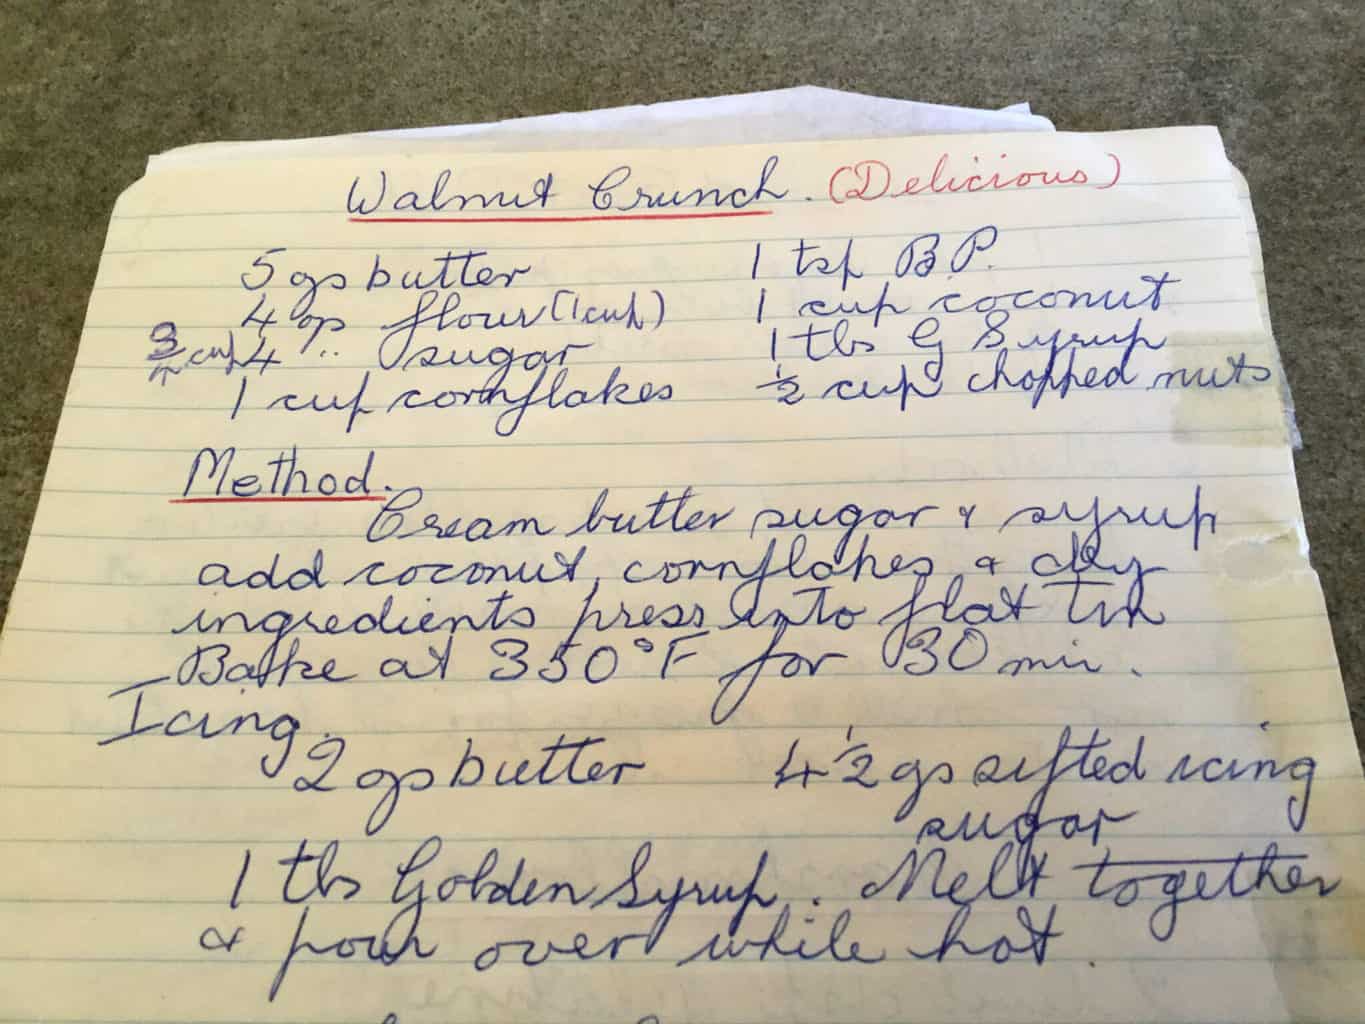 Walnut Crunch. (Delicious)
5 ozs butter
1 tsp B.P.
4 oz flour (1 cup)
1 cup coconut
3/4 cup 4 " sugar
1 tbs G Syrup
1 cup cornflakes
1/2 cup chopped nuts
Method.
Cream butter sugar & syrup
add coconut, cornflakes & dry
ingredients press into flat tin
Bake at 350°F for 30 min.
Icing.
2 ozs butter
4 1/2 ozs sifted icing
sugar
1 tbs Golden Syrup. Melt together
& pour over while hot.